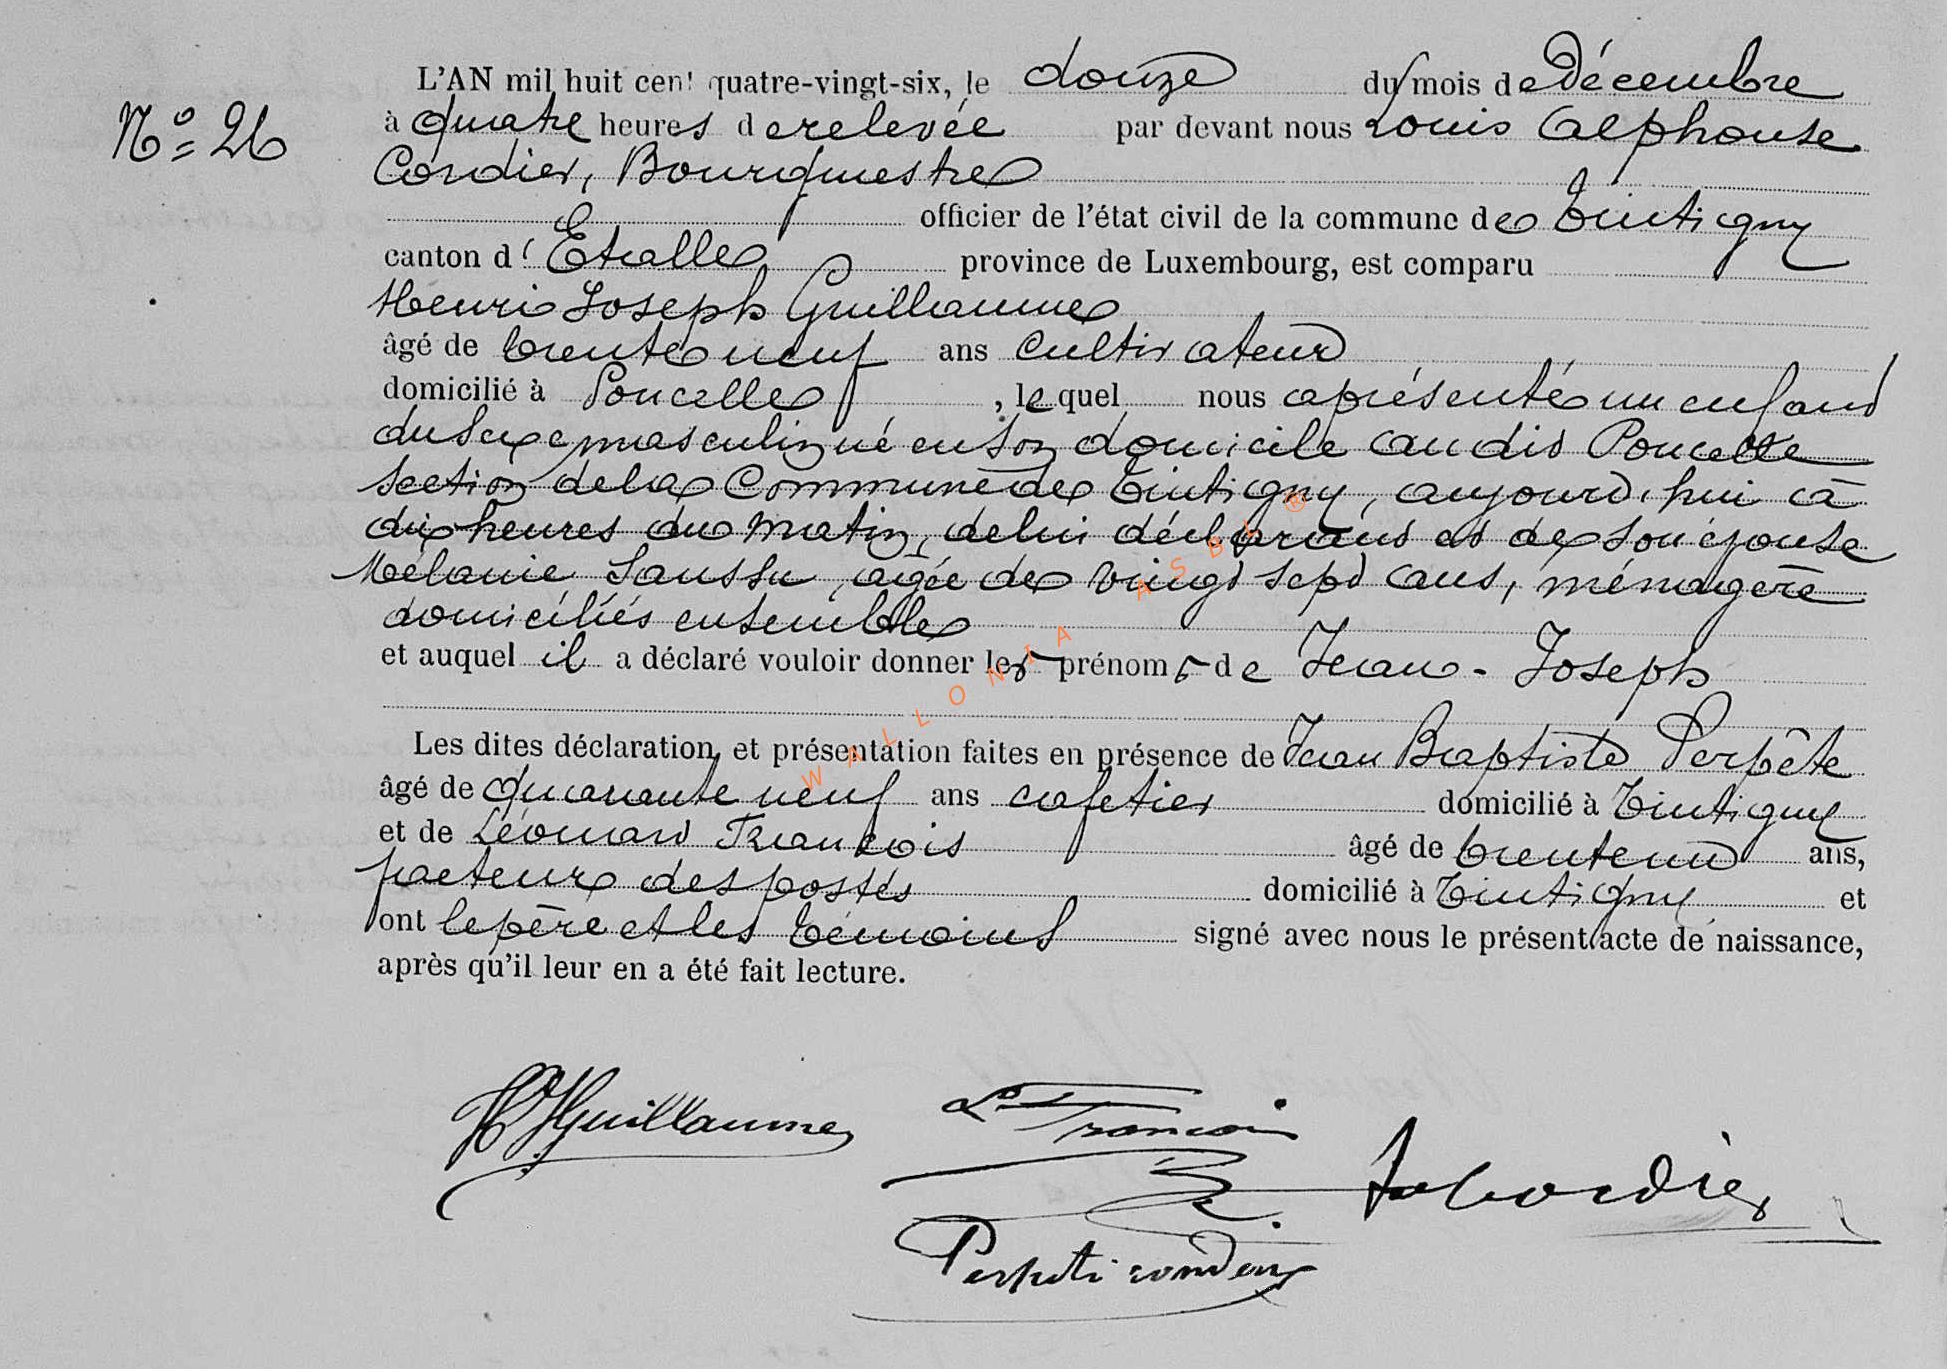 L'AN mil huit cent quatre-vingt-six, le douze du mois de Décembre
N° 26
à quatre heures de relevée par devant nous Louis Alphonse
Cordier, Bourgmestre
officier de l'état civil de la commune de Tintigny
canton d'Etalle province de Luxembourg, est comparu
Henri Joseph Guillaume
âgé de trente neuf ans cultivateur
domicilié à Poncelle, lequel nous a présenté un enfant
du sexe masculin né en son domicile au dit Poncelle
section de la Commune de Tintigny, aujourd'hui à
dix heures du matin, de lui déclarant et de son épouse
Mélanie Saussu, agée de vingt sept ans, ménagère
domiciliés ensemble
et auquel il a déclaré vouloir donner les prénoms de Jean-Joseph
Les dites déclaration et présentation faites en présence de Jean Baptiste Perpête
âgé de quarante neuf ans cafetier domicilié à Tintigny
et de Léonard François âgé de trente un ans,
facteur des postes domicilié à Tintigny et
ont le père et les témoins signé avec nous le présent acte de naissance,
après qu'il leur en a été fait lecture.
WALLONIA ASBL ®
HJGuillaume
Ld François
Cordier